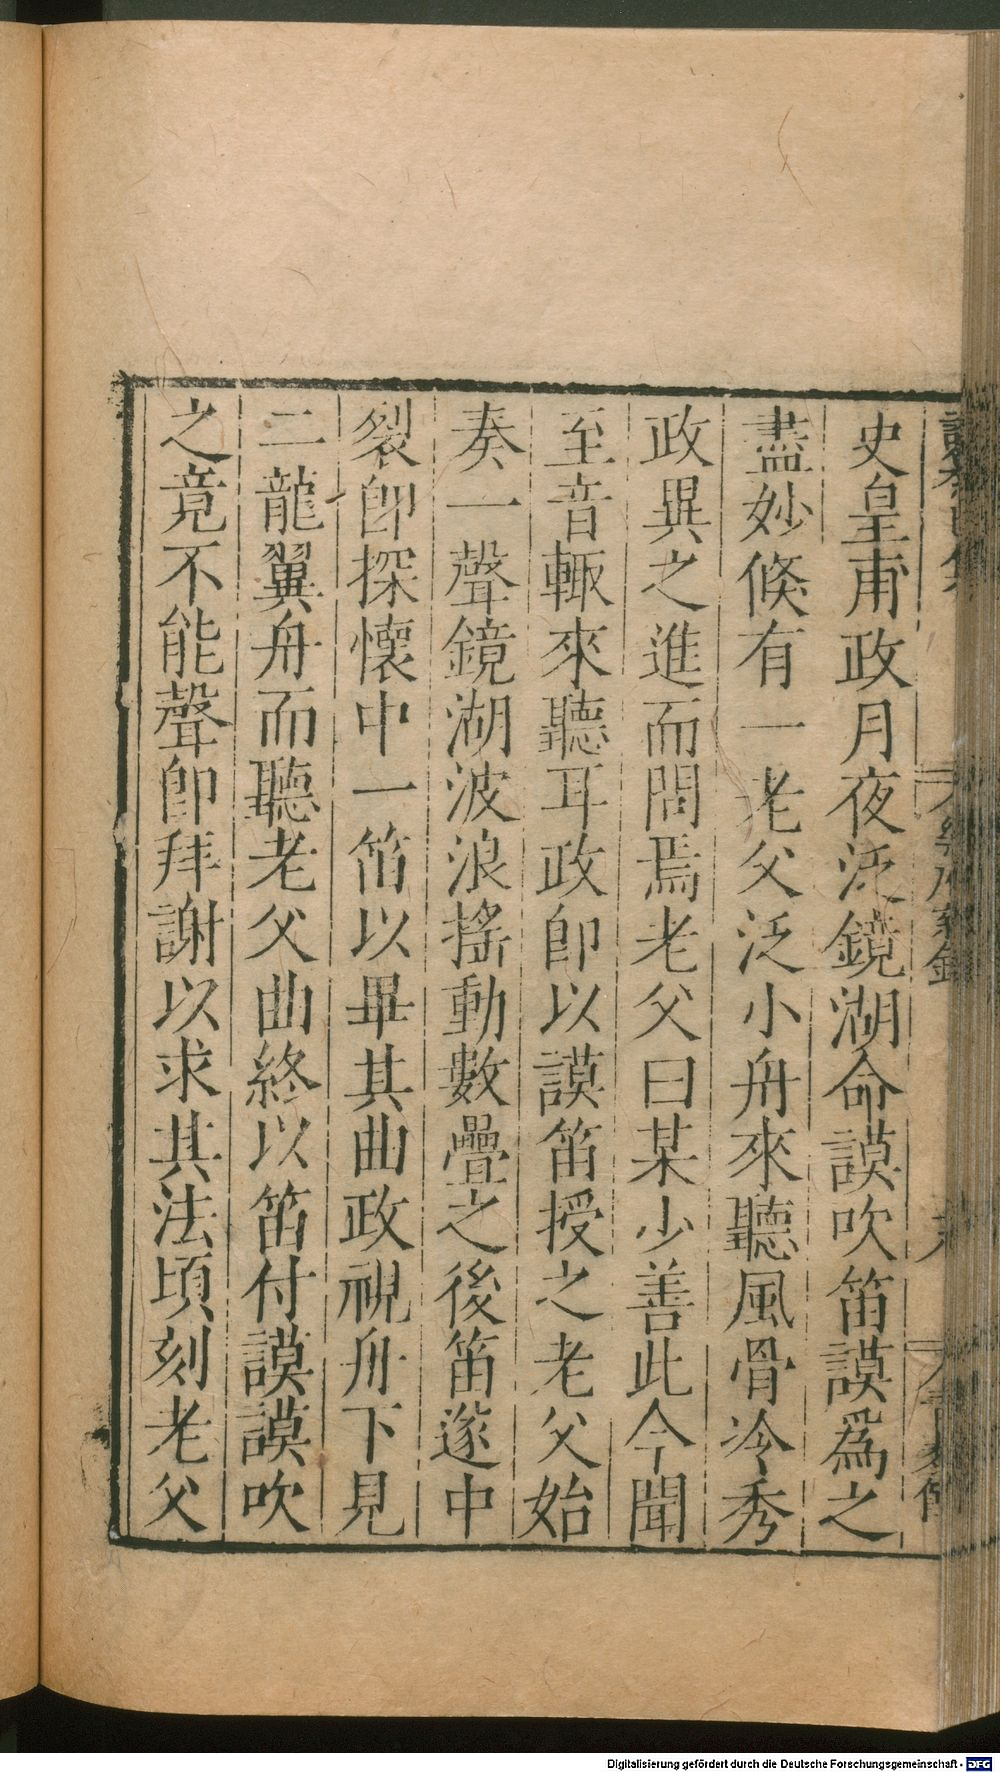 史皇甫政月夜泛鏡湖命謨吹笛謨爲之
盡妙倐有一老父泛小舟來聽風骨冷秀
政異之進而問焉老父曰某少善此今聞
至音輙來聽耳政卽以謨笛授之老父始
奏一聲鏡湖波浪搖動數疊之後笛遂中
裂卽探懷中一笛以畢其曲政視舟下見
二龍翼舟而聽老父曲終以笛付謨謨吹
之竟不能聲卽拜謝以求其法頃刻老父
Digitalisierung gefördert durch die Deutsche Forschungsgemeinschaft - DFG